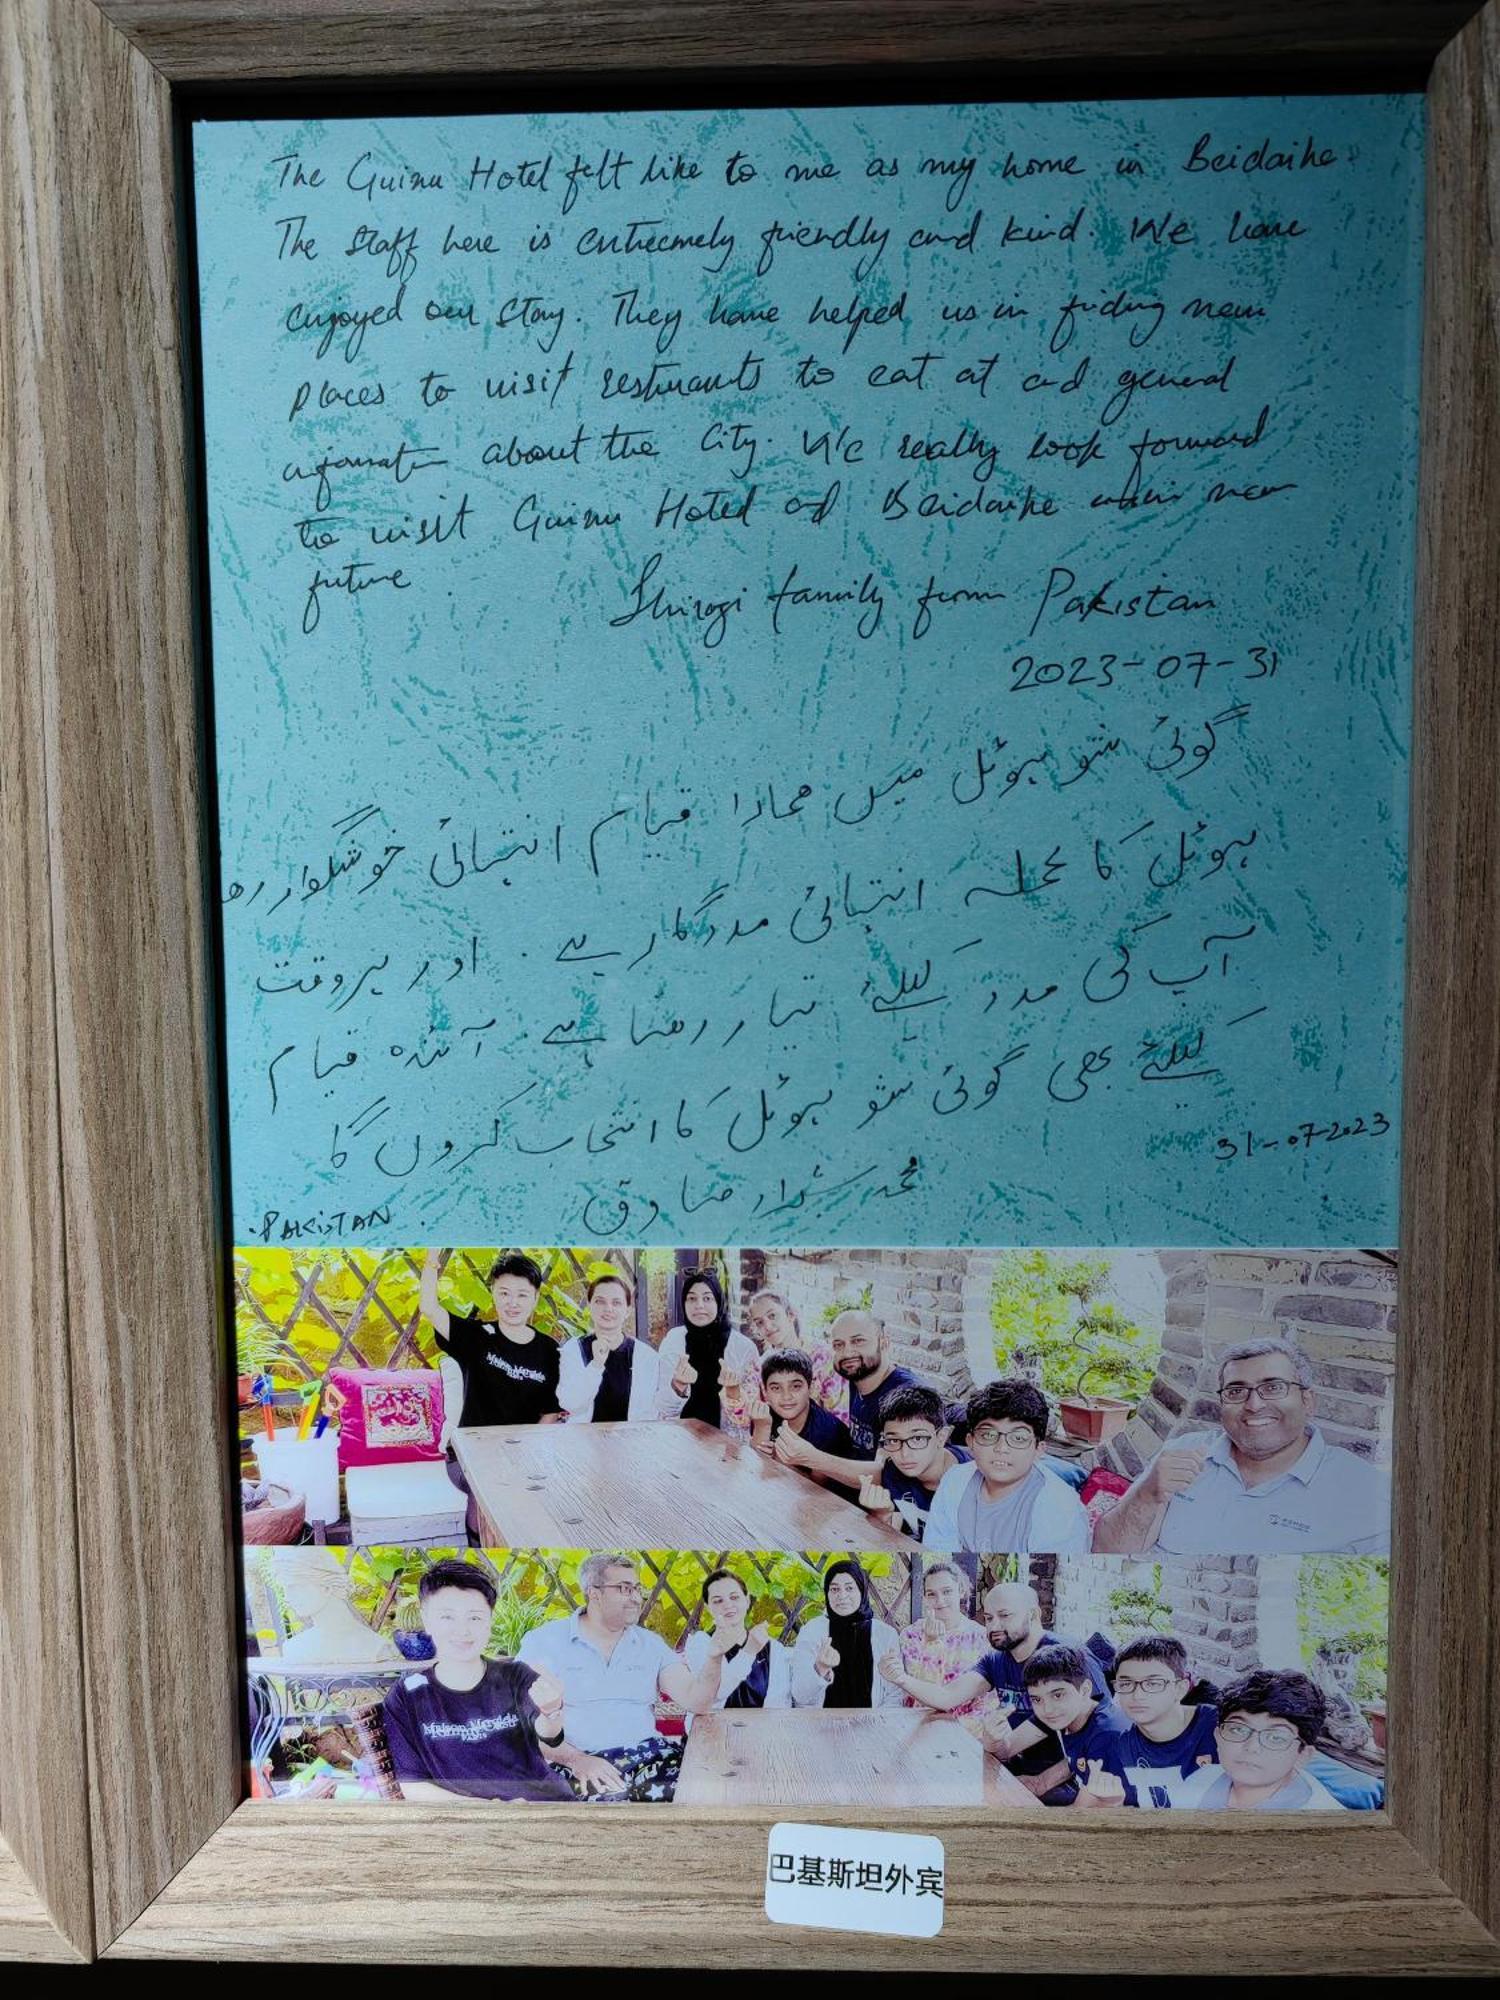 The Guinu Hotel felt like to me as my home in Beidaihe.
The Staff here is extremely friendly and kind. We have
enjoyed our stay. They have helped us in finding new
places to visit resturants to eat at and general
information about the City. We really look forward
to visit Guinu Hotel and Beidaihe in near
future
family from Pakistan
2023-07-31
گوئی شو ہوٹل میں ھمارا قیام انتہائی خوشگوار رھا
ہوٹل کا عملہ انتہائی مددگار ہے۔ اور ہروقت
آپ کی مدد کیلئے تیار رھتا ہے۔ آئندہ قیام
کیلئے بھی گوئی شو ہوٹل کا انتخاب کروں گا
31-07-2023
محمد صادق
PAKISTAN
巴基斯坦外宾